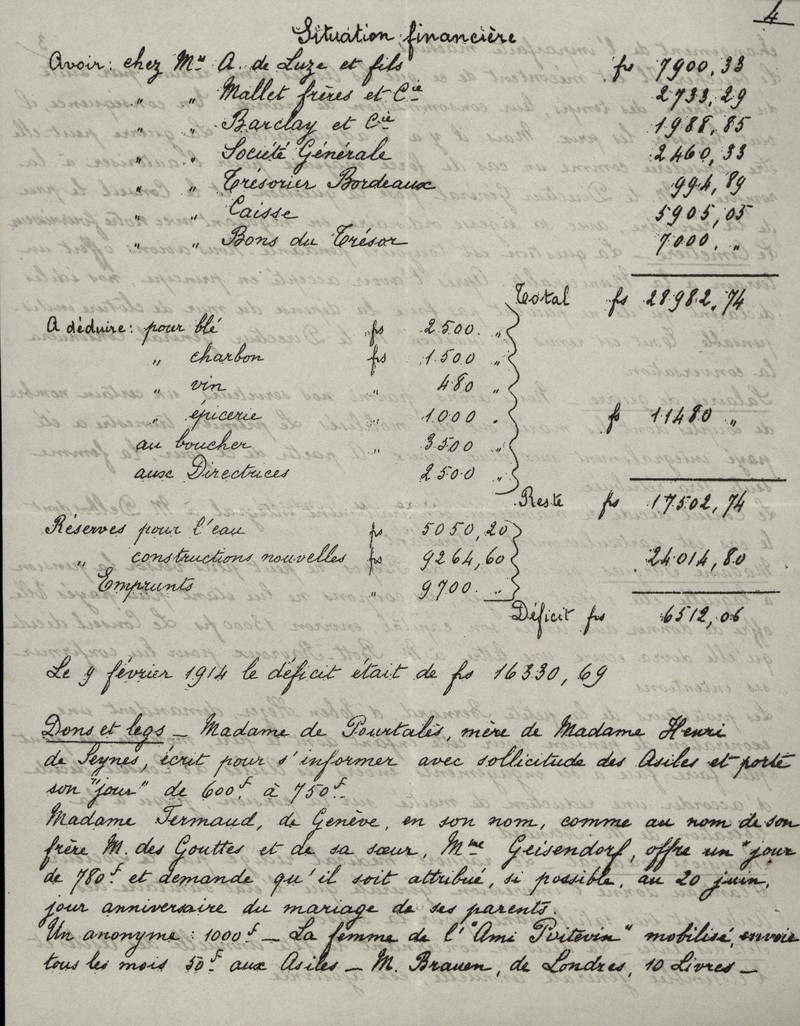 4
Situation financière
Avoir : chez Mrs A. de Luze et fils frs 7900,33
" " Mallet frères et Cie 2733,29
" " Barclay et Cie 1988,85
" " Société Générale 2460,33
" " Trésorier Bordeaux 994,89
" " Caisse 5905,05
" " Bons du Trésor 7000. "
Total frs 28982,74
A déduire : pour blé frs 2500. "
" charbon frs 1500 "
" vin " 480 "
" épicerie " 1000 " fs 11480 "
au boucher " 3500 "
aux Directrices 2500 "
Reste frs 17502,74
Réserves pour l'eau frs 5050,20
" constructions nouvelles frs 9264,60 24014,80
Emprunts " 9700. "
Déficit frs 6512,06
Le 9 février 1914 le déficit était de frs 16330,69
Dons et legs — Madame de Pourtalès, mère de Madame Henri
de Seynes, écrit pour s'informer avec sollicitude des Asiles et porte
son "jour" de 600f à 750f.
Madame Fermaud, de Genève, en son nom, comme au nom de son
frère M. des Gouttes et de sa sœur, Mme Geisendorf, offre un "jour
de 780f et demande qu'il soit attribué, si possible, au 20 juin,
jour anniversaire du mariage de ses parents.
Un anonyme : 1000f — La femme de l'"Ami Poitevin" mobilisé, envoie
tous les mois 50f aux Asiles — M. Brauen, de Londres, 10 Livres —